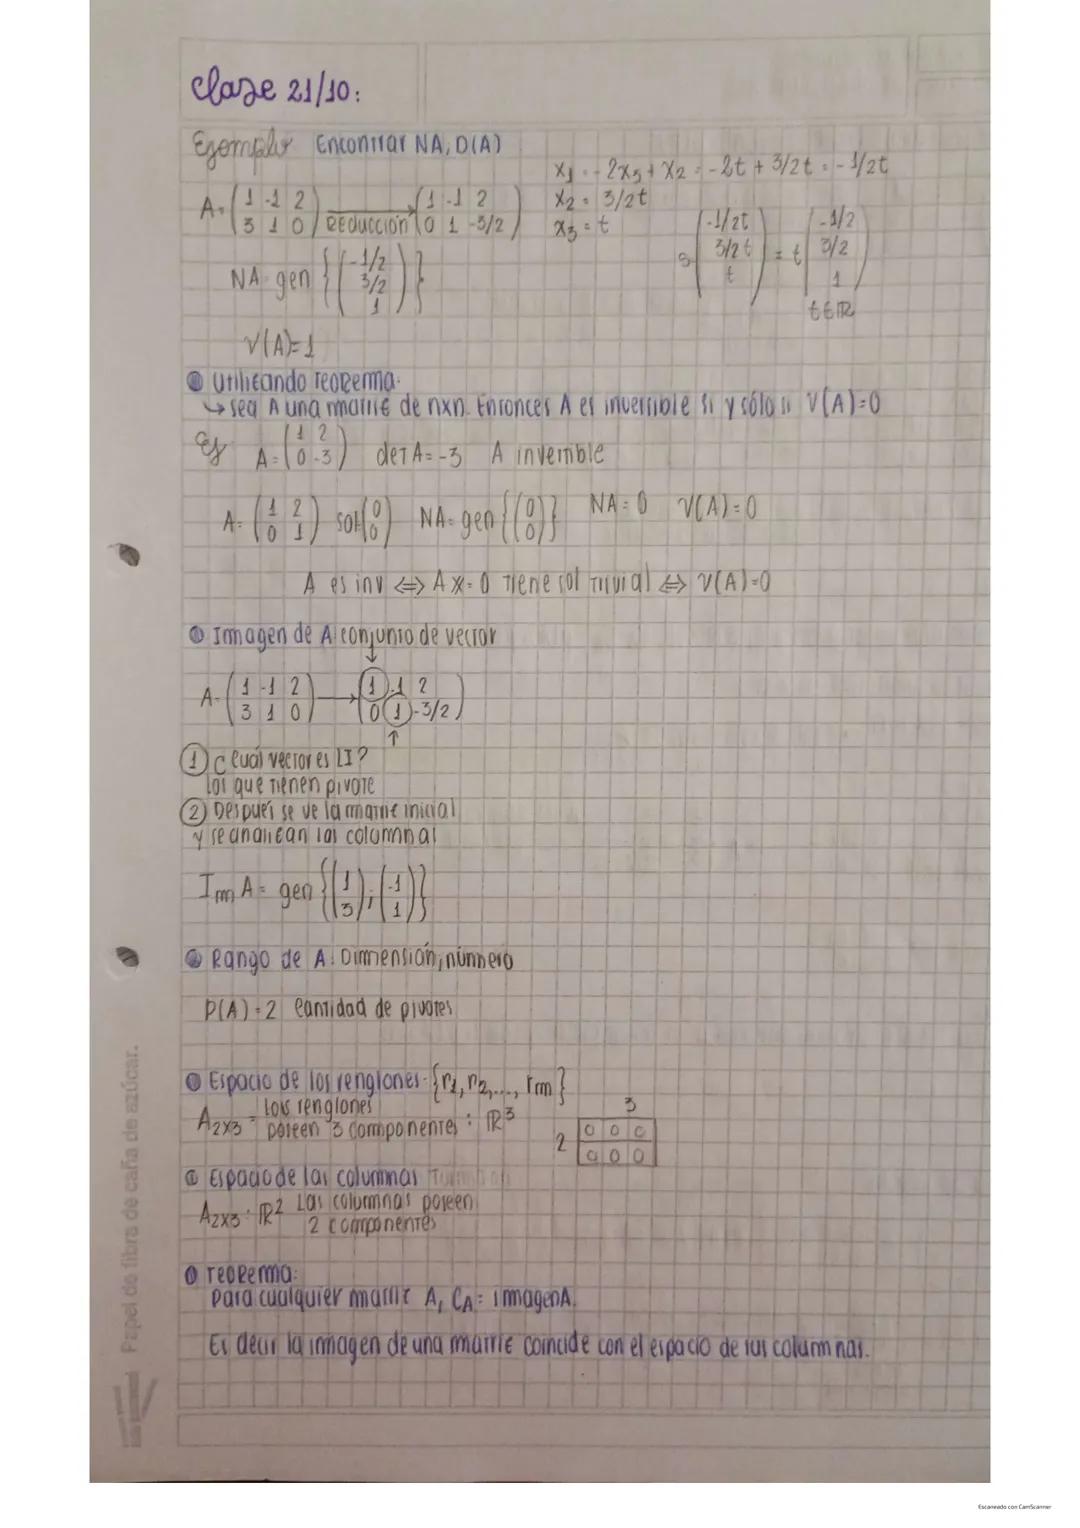 Clase 21/10:
Ejemplo Encontrar NA, D(A)
A = (1 -1 2 / 3 1 0) Reducción → (1 -1 2 / 0 1 -3/2)
x1 = -2x3 + x2 = -2t + 3/2t = -1/2t
x2 = 3/2t
x3 = t
S (-1/2t / 3/2t / t) = t (-1/2 / 3/2 / 1)
t∈ℝ
NA = gen {(-1/2 / 3/2 / 1)}
V(A) = 1
Utilizando teorema:
↳ sea A una matriz de nxn. Entonces A es invertible si y sólo si V(A)=0
Ej A = (1 2 / 0 -3) det A = -3 A invertible
A = (1 2 / 0 1) sol: (0 / 0) NA = gen {(0 / 0)} NA = 0 V(A) = 0
A es inv ⇔ Ax = 0 tiene sol trivial ⇔ V(A) = 0
Imagen de A: conjunto de vector
A = (1 -1 2 / 3 1 0) → (1 -1 2 / 0 1 -3/2)
① ¿Cuál vector es LI?
los que tienen pivote
② Después se ve la matriz inicial
y se analizan las columnas
Im A = gen {(1 / 3); (-1 / 1)}
Rango de A: Dimensión, número
P(A) = 2 Cantidad de pivotes
Espacio de los renglones = {r1, r2, ..., rm}
A2x3 = Los renglones
poseen 3 componentes : ℝ3
3
2 0 0 0
0 0 0
Espacio de las columnas
A2x3 : ℝ2 Las columnas poseen
2 componentes
Teorema:
Para cualquier matriz A, CA = imagen A.
Es decir la imagen de una matriz coincide con el espacio de sus columnas.
Papel de fibra de caña de azúcar.
Escaneado con CamScanner